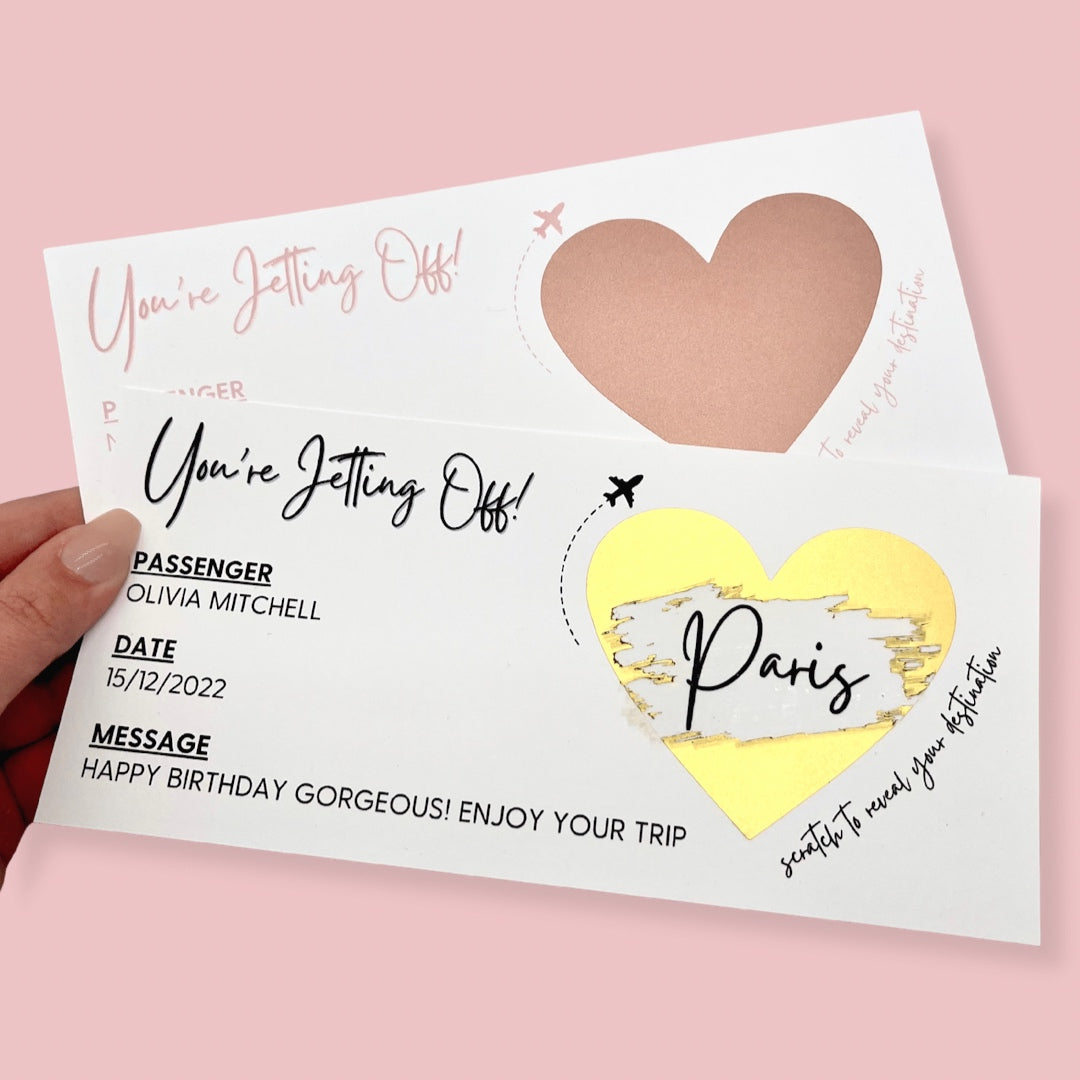 You're Jetting Off!
to reveal your destination
You're Jetting Off!
PASSENGER
OLIVIA MITCHELL
DATE
15/12/2022
MESSAGE
HAPPY BIRTHDAY GORGEOUS! ENJOY YOUR TRIP
Paris
scratch to reveal your destination